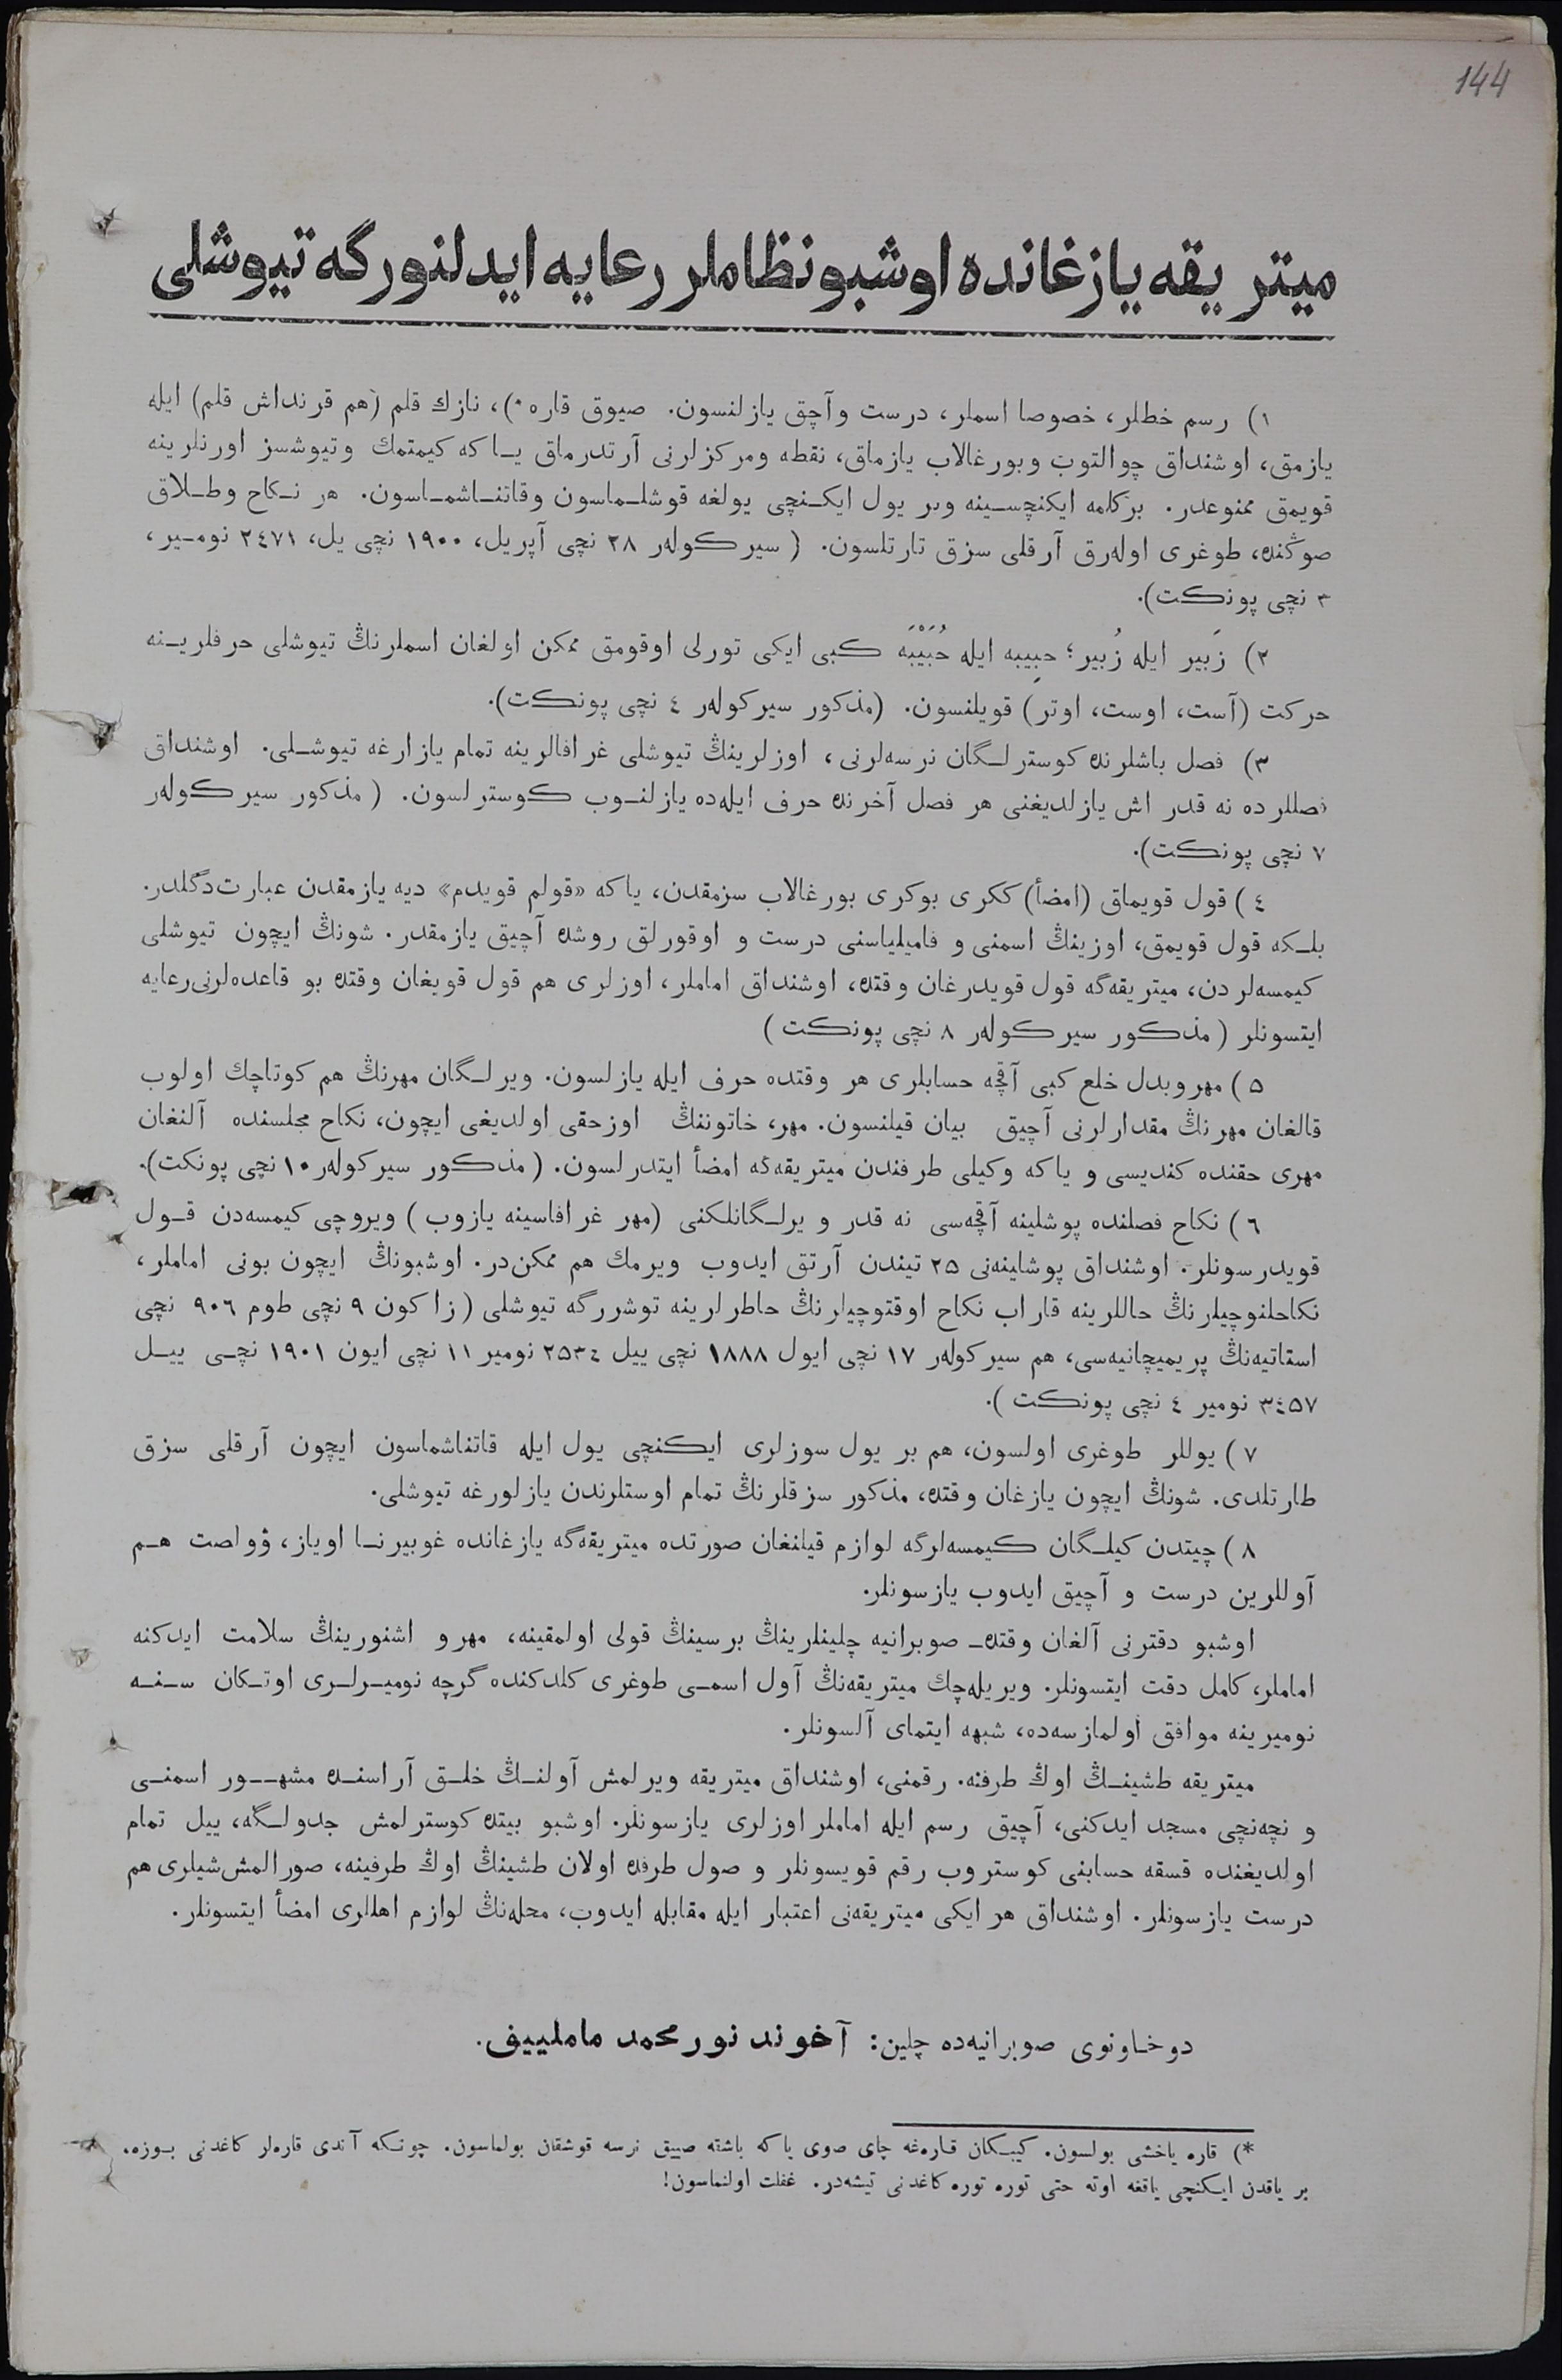 144
ميتريقه يازغانده اوشبو نظاملر رعايه ايدلنورگه تيوشلی
١) رسم خطلر، خصوصا اسملر، درست وآچق يازلنسون. صيوق قاره *)، نازك قلم (هم قرنداش قلم) ايله
يازمق، اوشنداق چوالتوب وبورغالاب يازماق، نقطه ومركزلرنی آرتدرماق يـاكه كيمتمك وتيوشسز اورنلرينه
قويمق ممنوعدر. بركلمه ايكنچسـينه وبر يول ايكـنچی يولغه قوشلـماسون وقاتنـاشمـاسون. هر نـكاح وطـلاق
صوڭنده، طوغری اولەرق آرقلی سزق تارتلسون. (سيركولەر ٢٨ نچی آپريل، ١٩٠٠ نچی يل، ٢٤٧١ نومـير،
٣ نچی پونكت).
٢) زَبير ايله زُبير؛ حبِيبه ايله حُبَيْبَه كبی ايكی تورلی اوقومق ممكن اولغان اسملرنڭ تيوشلی حرفلريـنه
حركت (آست، اوست، اوتر) قويلنسون. (مذكور سيركولەر ٤ نچی پونكت).
٣) فصل باشلرنده كوسترلـگان نرسەلرنی، اوزلرينڭ تيوشلی غرافالرينه تمام يازارغه تيوشـلی. اوشنداق
فصللرده نه قدر اش يازلديغنی هر فصل آخرنده حرف ايلەده يازلنـوب كوسترلسون. (مذكور سيركولەر
٧ نچی پونكت).
٤) قول قويماق (امضأ) ككری بوكری بورغالاب سزمقدن، ياكه «قولم قويدم» ديه يازمقدن عبارت دگلدر.
بلـكه قول قويمق، اوزينڭ اسمنی و فاميلياسنی درست و اوقورلق روشده آچيق يازمقدر. شونڭ ايچون تيوشلی
كيمسەلردن، ميتريقەگه قول قويدرغان وقتده، اوشنداق اماملر، اوزلری هم قول قويغان وقتده بو قاعدەلرنی رعايه
ايتسونلر (مذكور سيركولەر ٨ نچی پونكت)
٥) مهر وبدل خلع كبی آقچه حسابلری هر وقتده حرف ايله يازلسون. ويرلـگان مهرنڭ هم كوتاچك اولوب
قالغان مهرنڭ مقدارلرنی آچيق بيان قيلنسون. مهر، خاتوننڭ اوزحقی اولديغی ايچون، نكاح مجلسنده آلنغان
مهری حقنده كنديسی و ياكه وكيلی طرفندن ميتريقەگه امضأ ايتدرلسون. (مذكور سيركولەر ١٠ نچی پونكت).
٦) نكاح فصلنده پوشلينه آقچەسی نه قدر ويرلـگانلكنی (مهر غرافاسينه يازوب) ويروچی كيمسەدن قـول
قويدرسونلر. اوشنداق پوشلينەنی ٢٥ تيندن آرتق ايدوب ويرمك هم ممكن در. اوشبونڭ ايچون بونی اماملر،
نكاحلنوچيلرنڭ حاللرينه قاراب نكاح اوقتوچيلرنڭ خاطرلرينه توشررگه تيوشلی (زاكون ٩ نچی طوم ٩٠٦ نچی
استاتيەنڭ پريميچانيەسی، هم سيركولەر ١٧ نچی ايول ١٨٨٨ نچی ييل ٢٥٣٤ نومير ١١ نچی ايون ١٩٠١ نچـی ييـل
٣٤٥٧ نومير ٤ نچی پونكت).
٧) يوللر طوغری اولسون، هم بر يول سوزلری ايكنچی يول ايله قاتناشماسون ايچون آرقلی سزق
طارتلدی. شونڭ ايچون يازغان وقتده، مذكور سزقلرنڭ تمام اوستلرندن يازلورغه تيوشلی.
٨) چيتدن كيلـگان كيمسەلرگه لوازم قيلنغان صورتده ميتريقەگه يازغانده غوبيرنـا اوياز، ۋولصت هـم
آوللرين درست و آچيق ايدوب يازسونلر.
اوشبو دفترنی آلغان وقتده ـ صوبرانيه چلينلرينڭ برسينڭ قولی اولمقينه، مهر و اشنورينڭ سلامت ايدكنه
اماملر، كامل دقت ايتسونلر. ويريلەچك ميتريقەنڭ آول اسمـی طوغری كلدكنده گرچه نوميـرلـری اوتـكان سـنـه
نوميرينه موافق اولمازسەده، شبهه ايتمای آلسونلر.
ميتريقه طشينـڭ اوڭ طرفنه. رقمنی، اوشنداق ميتريقه ويرلمش آولنـڭ خلـق آراسنـده مشهـور اسمنـی
و نچەنچی مسجد ايدكنی، آچيق رسم ايله اماملر اوزلری يازسونلر. اوشبو بيتده كوسترلمش جدولـگه، ييل تمام
اولديغنده قسقه حسابنی كوستروب رقم قويسونلر و صول طرفده اولان طشينڭ اوڭ طرفينه، صورالمش شيلری هم
درست يازسونلر. اوشنداق هر ايكی ميتريقەنی اعتبار ايله مقابله ايدوب، محلەنڭ لوازم اهللری امضأ ايتسونلر.
دوخـاونوی صوبرانيەده چلين: آخوند نورمحمد ماملييف.
*) قاره ياخشی بولسون. كيبـكان قـارەغه چای صوی ياكه باشته صيق نرسه قوشقان بولماسون. چونـكه آندی قارەلر كاغدنی بـوزه،
بر ياقدن ايـكنچی ياقغه اوته حتی توره توره كاغدنی تيشەدر. غفلت اولنماسون!